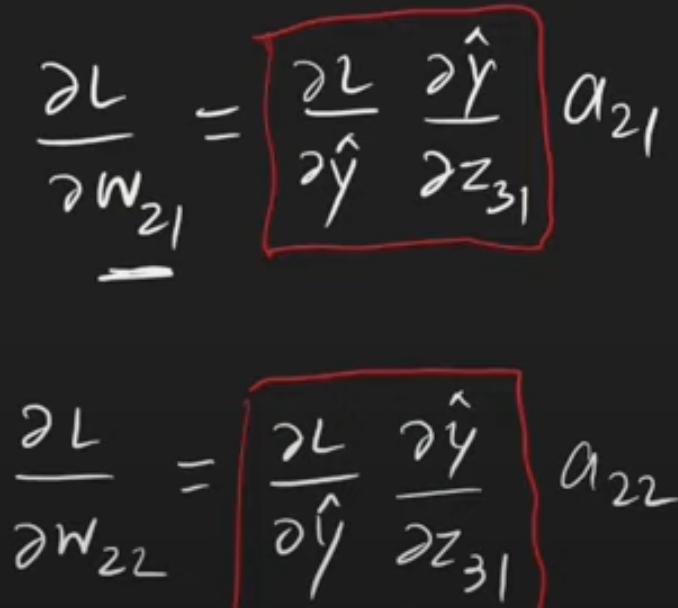 ∂L/∂W₂₁ = ∂L/∂ŷ ∂ŷ/∂z₃₁ a₂₁
∂L/∂W₂₂ = ∂L/∂ŷ ∂ŷ/∂z₃₁ a₂₂